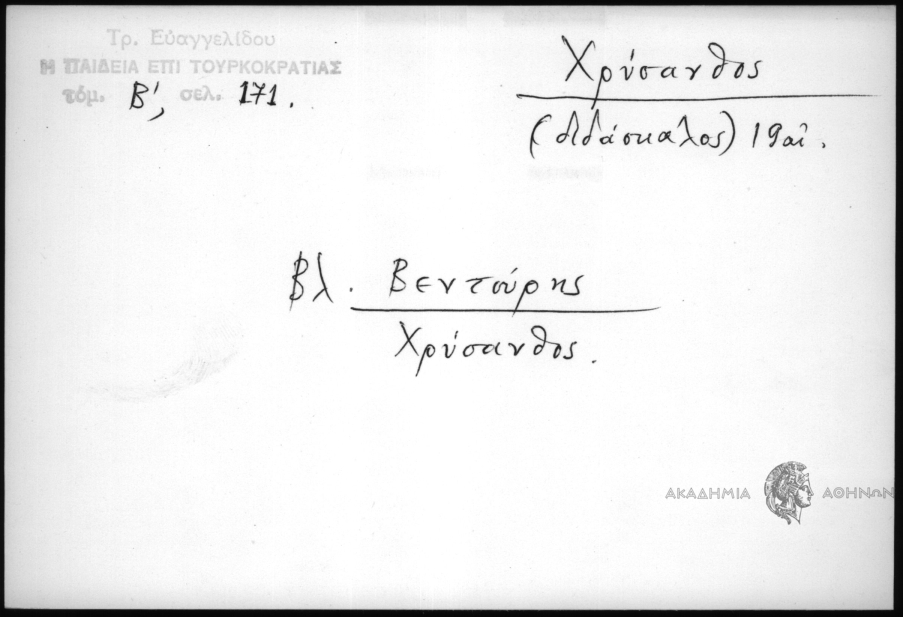 Τρ. Εὐαγγελίδου
Η ΠΑΙΔΕΙΑ ΕΠΙ ΤΟΥΡΚΟΚΡΑΤΙΑΣ
τόμ. Β', σελ. 171.
Χρύσανθος
(διδάσκαλος) 19αἰ.
Βλ. Βεντούρης
Χρύσανθος.
ΑΚΑΔΗΜΙΑ ΑΘΗΝΩΝ